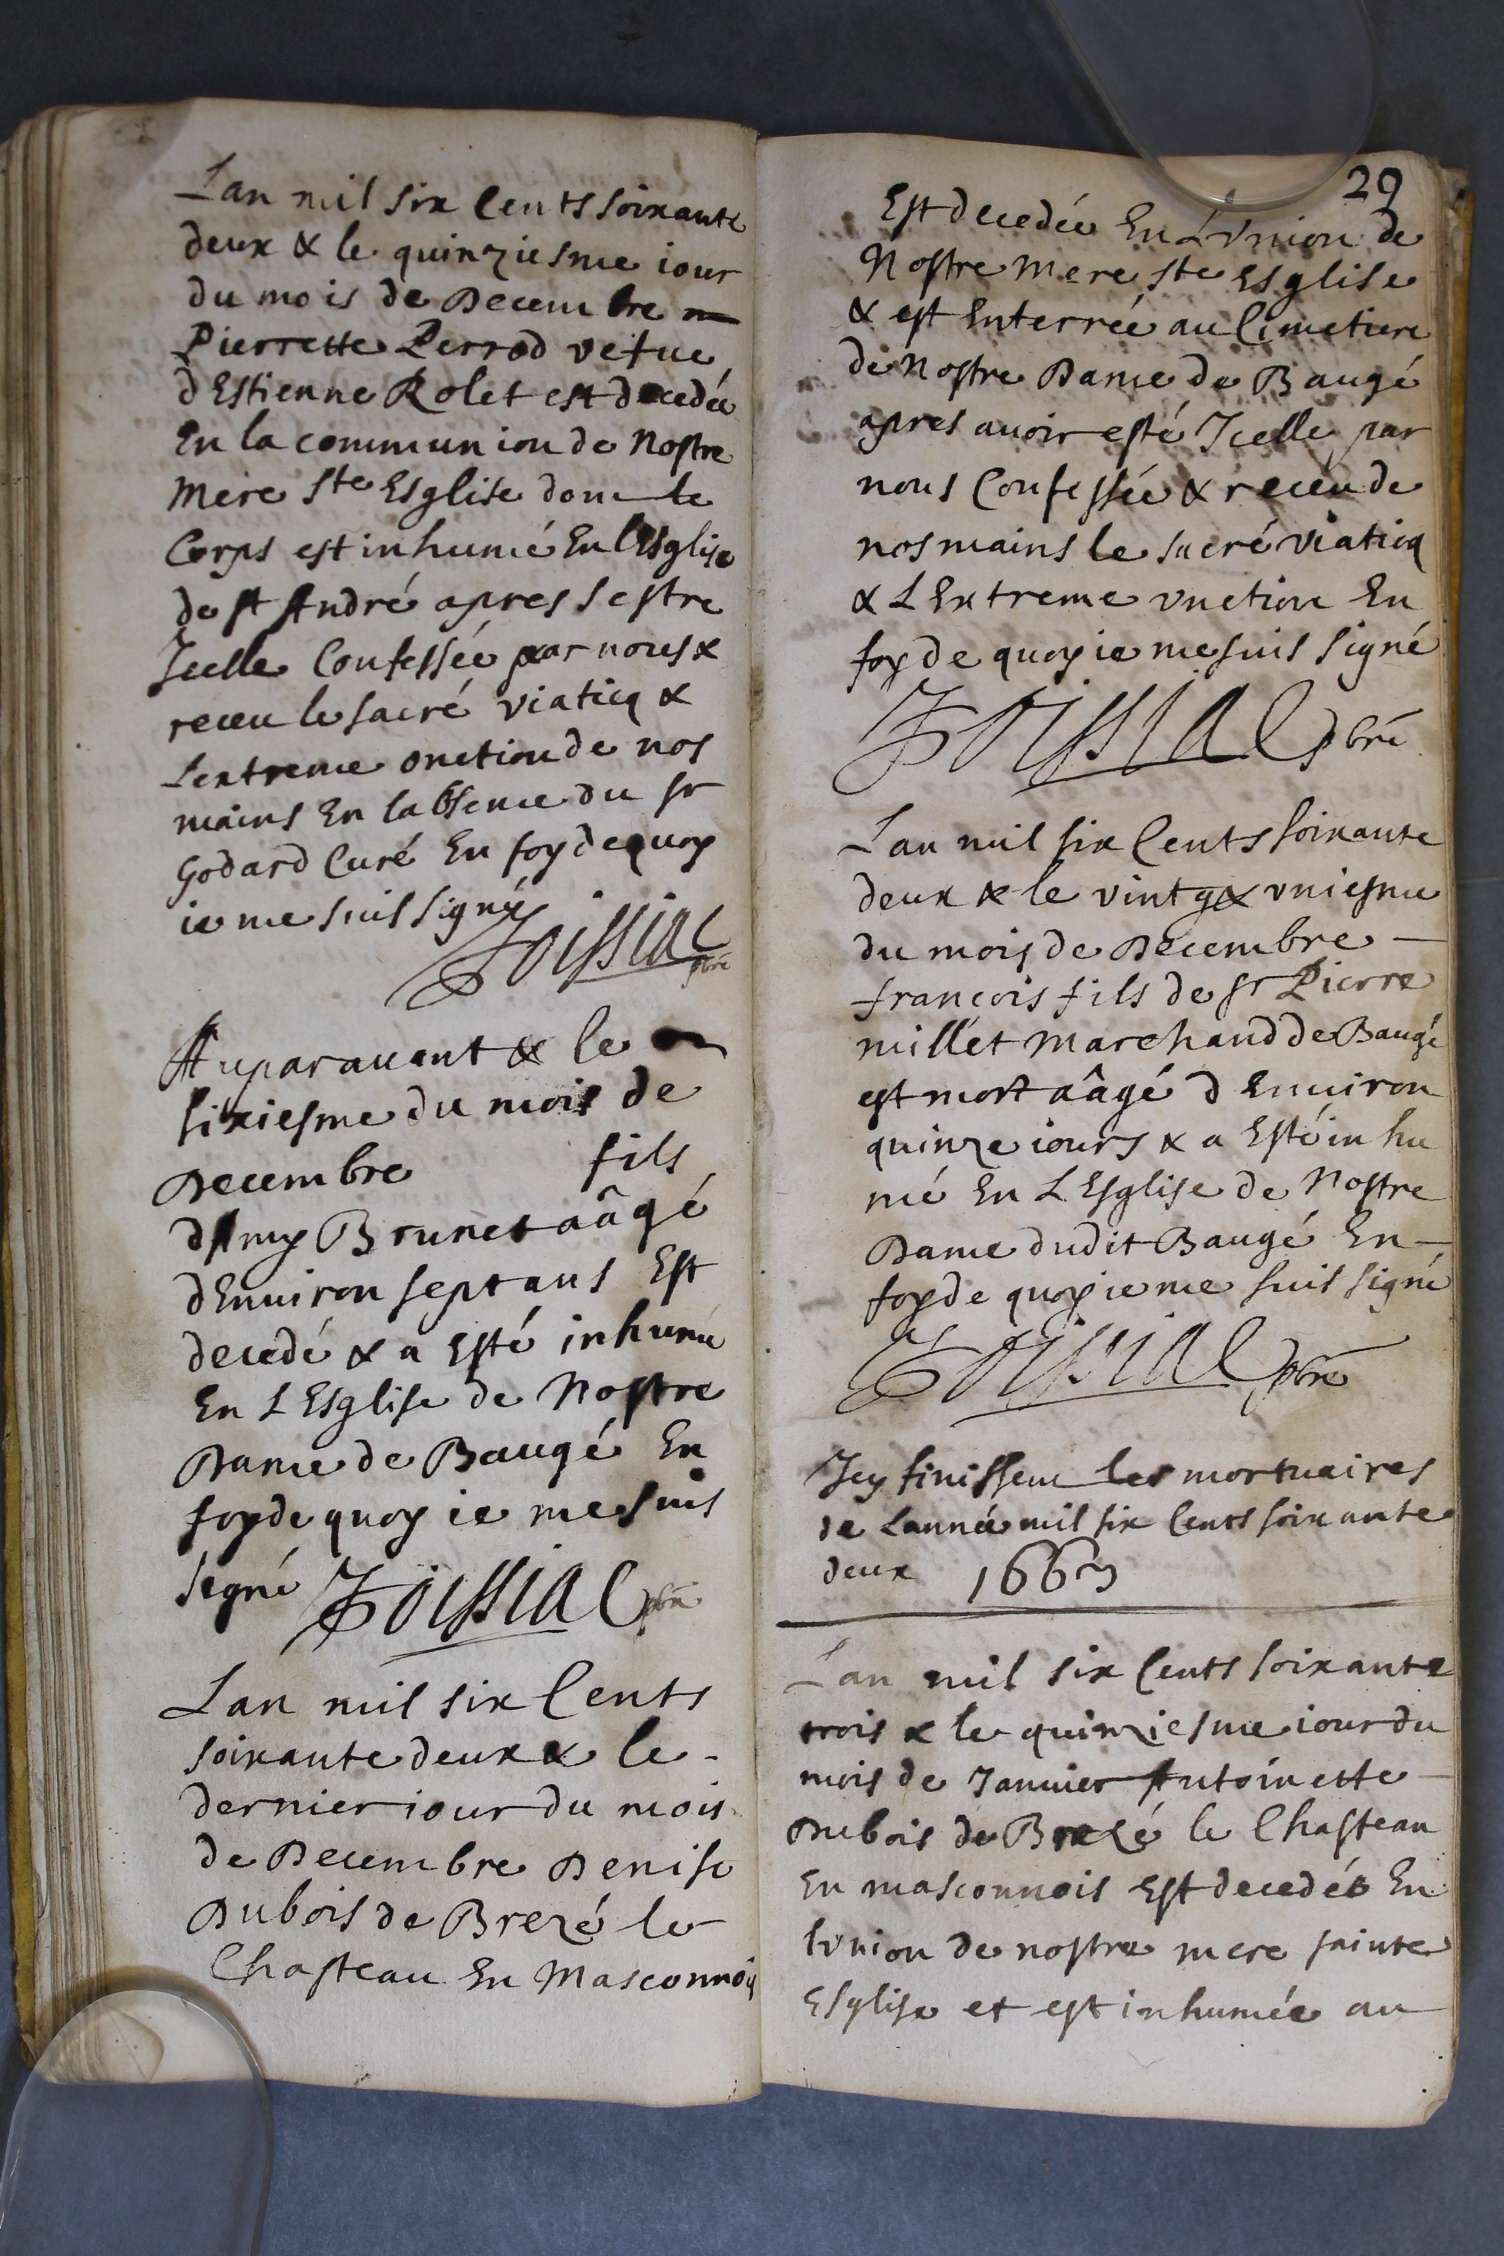 Lan mil six Cents soixante
deux & le quinziesme iour
du mois de Decembre
Pierrette Perrod vefue
d Estienne Rolet est decedée
En la communion de Nostre
Mere Ste Esglise donc le
Corps est inhumé En lEsglise
de st André apres sestre
Icelle Confessée par nous &
receu le sacré viaticq &
Lextreme onction de nos
mains En labsence du sr
Godard Curé En foy de quoy
ie me suis signé
Joissiac
pbre
Auparauant & le
sixiesme du mois de
Decembre fils
d my Brunet aâgé
dEnuiron sept ans Est
decedé & a Esté inhumé
En L Esglise de Nostre
Dame de Baugé En
foy de quoy ie me suis
signé Joissiac pbre
Lan mil six Cents
soixante deux & le -
dernier iour du mois
de Decembre Denise
Dubois de Brezé le
Chasteau En Masconnois
29
Est decedée En LVnion de
Nostre Mere Ste Esglise
& est Enterrée au Cimetiere
de Nostre Dame de Baugé
apres auoir esté Icelle par
nous Confessée & receu de
nos mains le sacré viaticq
& L Extreme vnction En
foy de quoy ie me suis signé
Joissiac pbre
Lan mil six Cents soixante
deux & le vintg & vniesme
du mois de Decembre —
françois fils de sr Pierre
millet Marchand de Baugé
est mort aâgé d Enuiron
quinze iours & a Esté inhu
mé En L Esglise de Nostre
Dame dudit Baugé En —
foy de quoy ie me suis signé
Joissiac pbre
Icy finissent les mortuaires
de Lannée mil six Cents soixante
deux 1663
Lan mil six Cents soixante
trois & le quinziesme iour du
mois de Januier Antoinette —
Dubois de Brezé le Chasteau
En masconnois Est decedée En
lvnion de nostre mere sainte
Esglise et est inhumée au